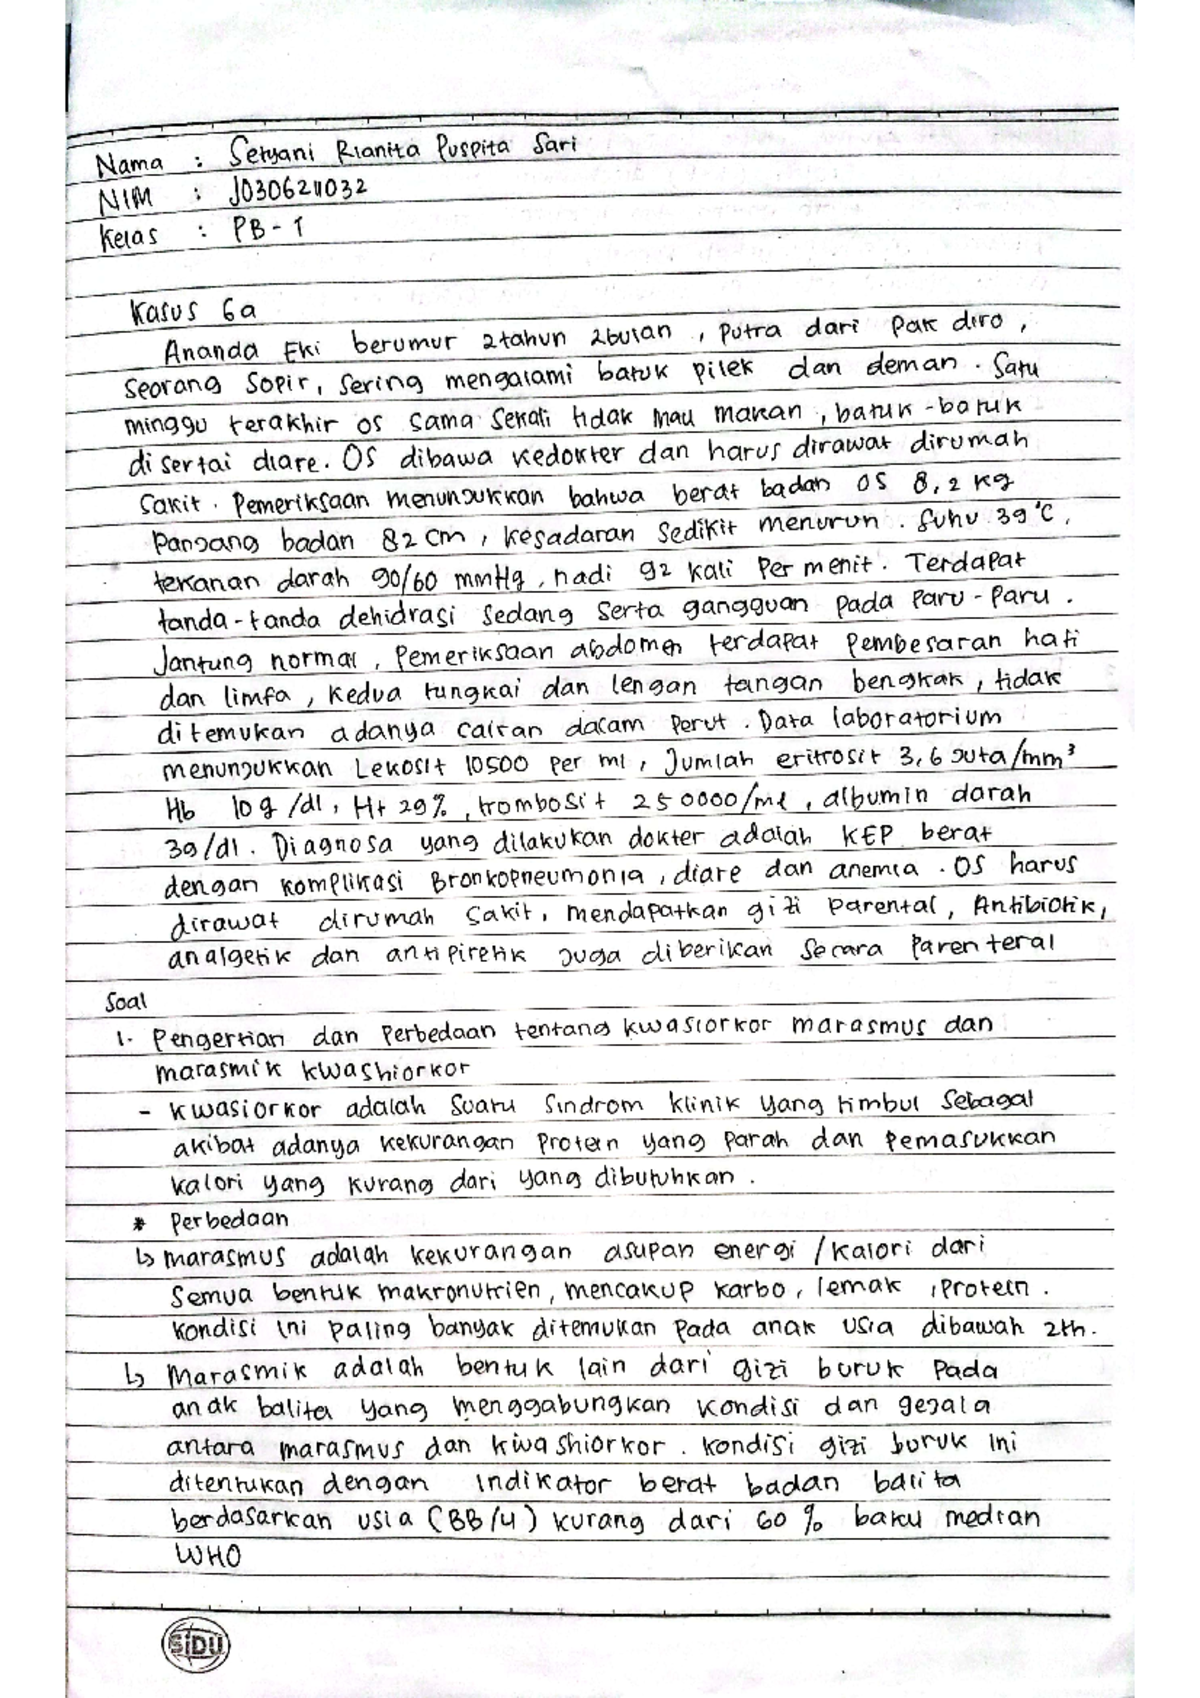 Nama : Setyani Rianita Puspita Sari
NIM : J0306211032
Kelas : PB - 1
Kasus 6a
Ananda Eki berumur 2tahun 2bulan , putra dari pak diro ,
seorang sopir, sering mengalami batuk pilek dan deman . Satu
minggu terakhir os sama sekali tidak mau makan , batuk - batuk
disertai diare. OS dibawa kedokter dan harus dirawat dirumah
sakit . Pemeriksaan menunjukkan bahwa berat badan OS 8,2 kg
Panjang badan 82 cm , kesadaran sedikit menurun . Suhu 39°C ,
tekanan darah 90/60 mmHg , nadi 92 kali per menit . Terdapat
tanda-tanda dehidrasi sedang serta gangguan pada paru-paru .
Jantung normal , pemeriksaan abdomen terdapat pembesaran hati
dan limfa , kedua tungkai dan lengan tangan bengkak , tidak
ditemukan adanya cairan dalam perut . Data laboratorium
menunjukkan Lekosit 10500 per ml , Jumlah eritrosit 3,6 juta/mm³
Hb 10 g /dl , Ht 29% , trombosit 250000/ml , albumin darah
3g/dl . Diagnosa yang dilakukan dokter adalah KEP berat
dengan komplikasi Bronkopneumonia , diare dan anemia . OS harus
dirawat dirumah sakit , mendapatkan gizi parental , Antibiotik ,
analgetik dan antipiretik juga diberikan secara parenteral
Soal
1. Pengertian dan perbedaan tentang kwasiorkor marasmus dan
marasmik kwashiorkor
- kwasiorkor adalah suatu sindrom klinik yang timbul sebagai
akibat adanya kekurangan protein yang parah dan pemasukkan
kalori yang kurang dari yang dibutuhkan .
* Perbedaan
↳ marasmus adalah kekurangan asupan energi /kalori dari
semua bentuk makronutrien, mencakup karbo, lemak , protein .
kondisi ini paling banyak ditemukan pada anak usia dibawah 2th.
↳ Marasmik adalah bentuk lain dari gizi buruk pada
anak balita yang menggabungkan kondisi dan gejala
antara marasmus dan kwashiorkor . kondisi gizi buruk ini
ditentukan dengan indikator berat badan balita
berdasarkan usia (BB/U) kurang dari 60 % baku median
WHO
SiDU